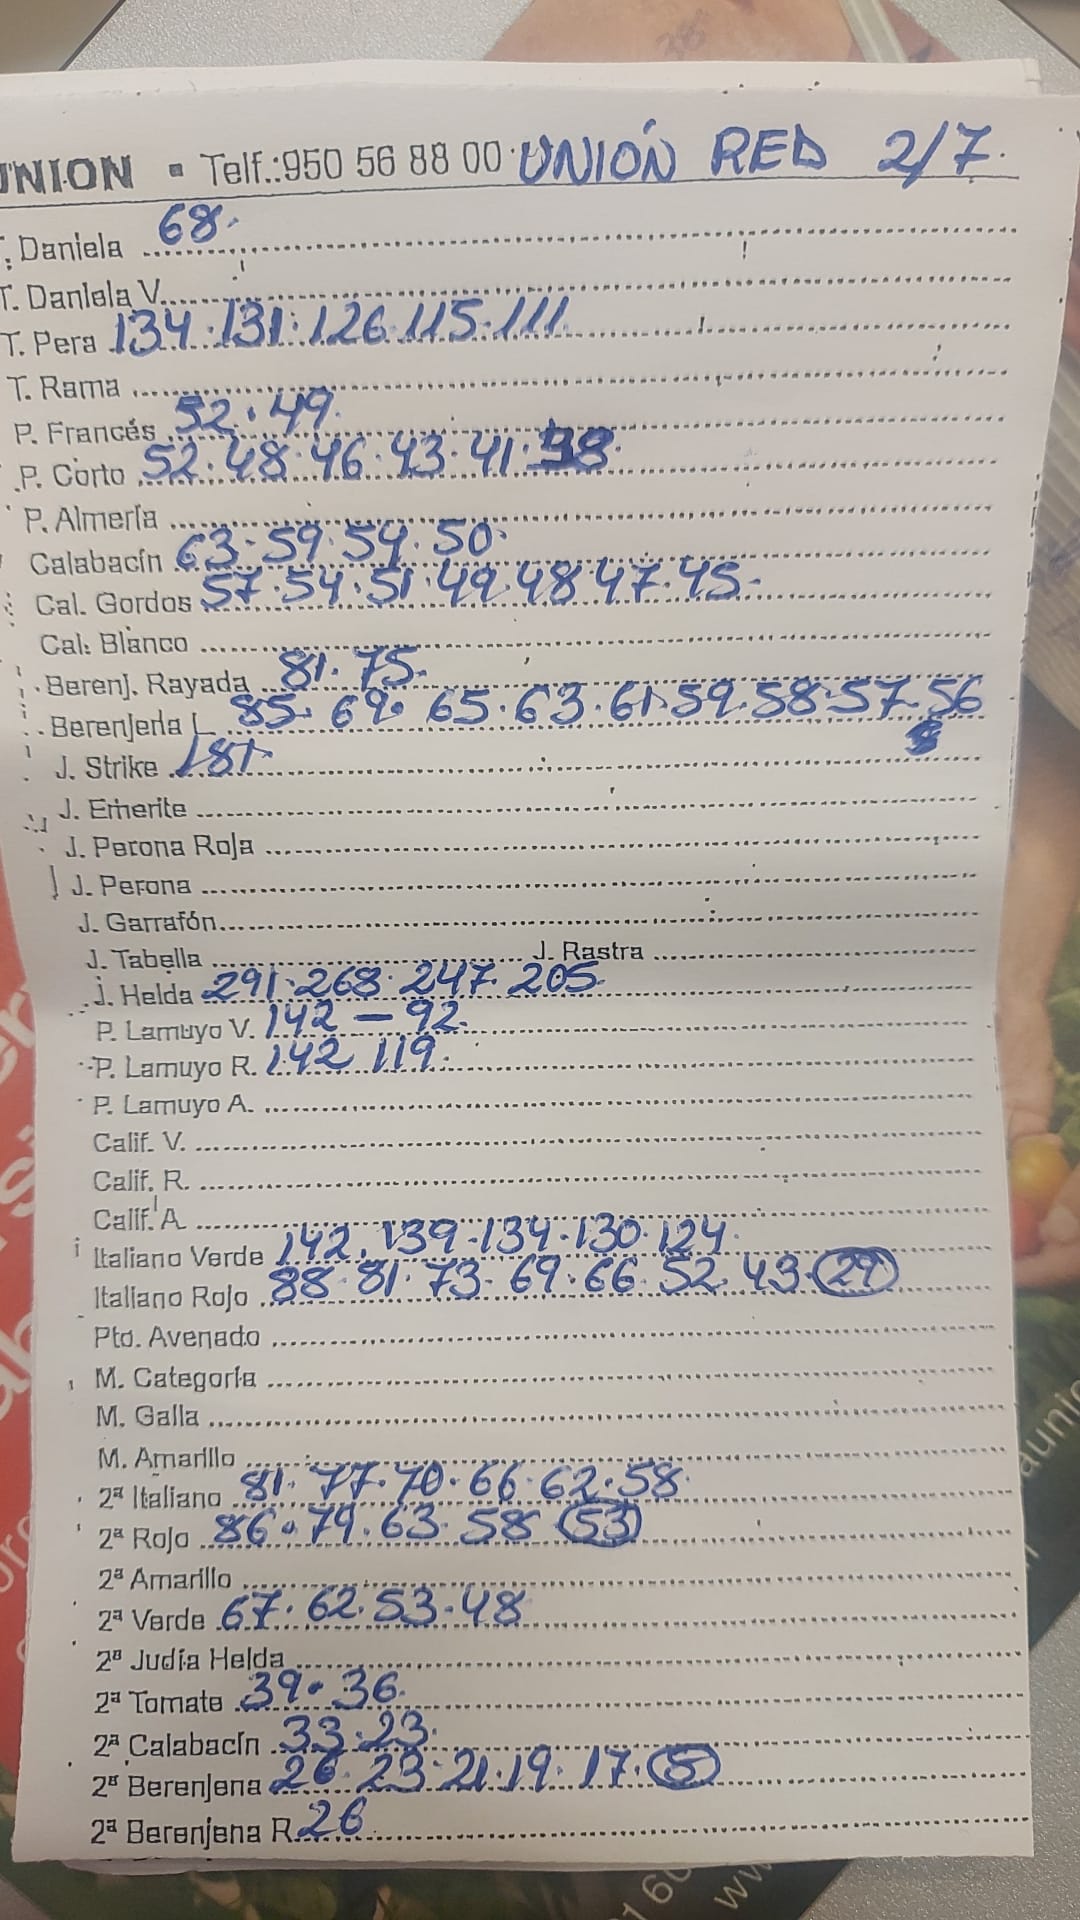 UNION ▪ Telf.:950 56 88 00 UNIÓN RED 2/7.
T. Daniela 68.
T. Daniela V.
T. Pera 134.131.126.115.111
T. Rama
P. Francés 52.49.
P. Corto 52.48.46.43.41.38.
P. Almería
Calabacín 63.59.54.50.
Cal. Gordos 57.54.51.49.48 47.45.
Cal. Blanco
Berenj. Rayada 81.75.
Berenjena L 85.69. 65.63.61.59.58.57.56
J. Strike 181.
J. Emerite
J. Perona Roja
J. Perona
J. Garrafón
J. Tabella J. Rastra
J. Helda 291.268.247.205.
P. Lamuyo V. 142 – 92.
P. Lamuyo R. 142 119.
P. Lamuyo A.
Calif. V.
Calif. R.
Calif. A
Italiano Verde 142.139.134.130.124.
Italiano Rojo 88.81.73.69.66.52.43.(29)
Pto. Avenado
M. Categoría
M. Galia
M. Amarillo
2ª Italiano 81.77.70.66.62.58.
2ª Rojo 86.79.63.58 (53)
2ª Amarillo
2ª Verde 67.62.53.48
2ª Judía Helda
2ª Tomate 39.36.
2ª Calabacín 33.23.
2ª Berenjena 26.23.21.19.17.(5)
2ª Berenjena R. 26